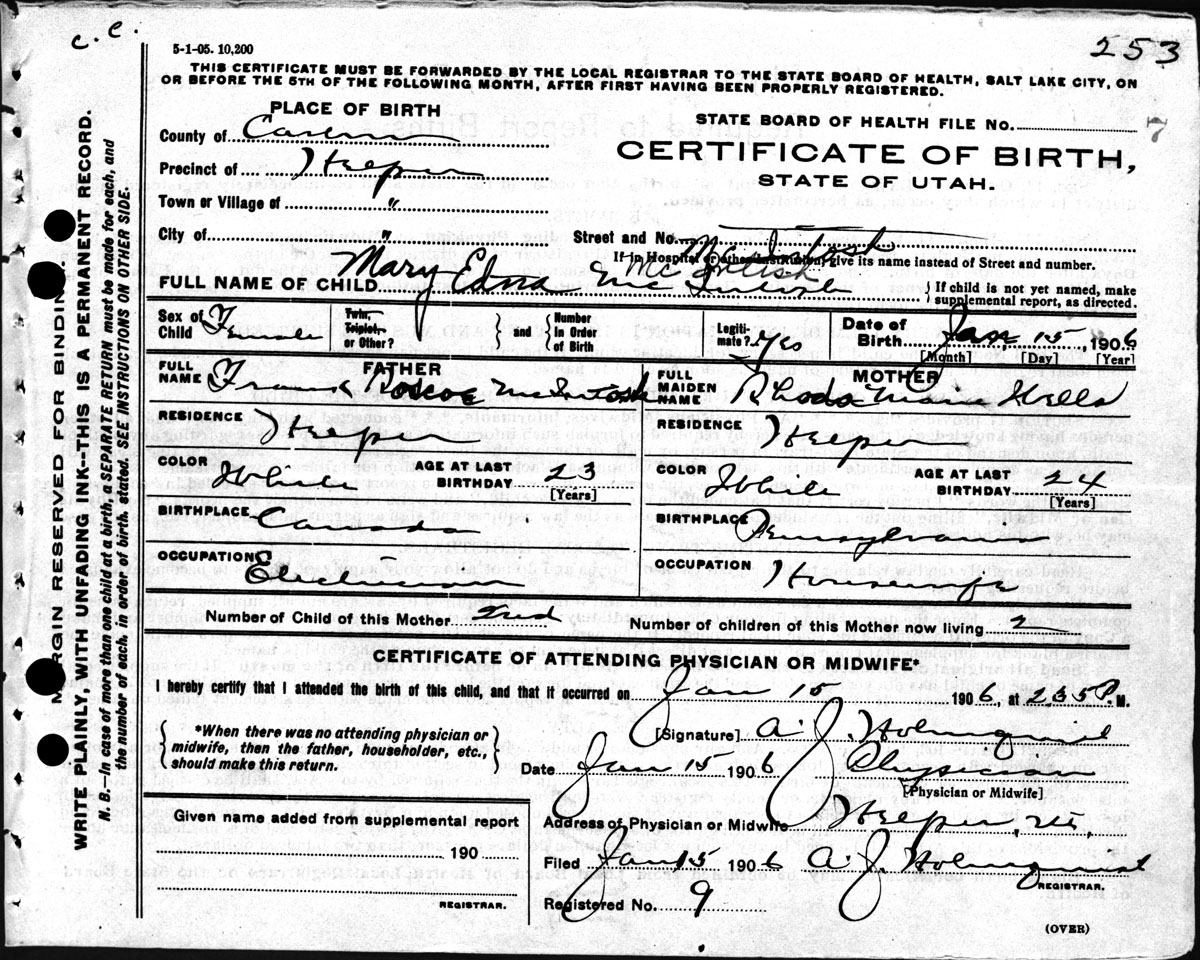 c. c.
253
5-1-05. 10,200
THIS CERTIFICATE MUST BE FORWARDED BY THE LOCAL REGISTRAR TO THE STATE BOARD OF HEALTH, SALT LAKE CITY, ON
OR BEFORE THE 5TH OF THE FOLLOWING MONTH, AFTER FIRST HAVING BEEN PROPERLY REGISTERED.
PLACE OF BIRTH
County of Carbon
Precinct of Helper
Town or Village of "
City of "
STATE BOARD OF HEALTH FILE No. 7
CERTIFICATE OF BIRTH,
STATE OF UTAH.
Street and No.
If in Hospital or other institution, give its name instead of Street and number.
FULL NAME OF CHILD Mary Edna McIntosh
{ If child is not yet named, make supplemental report, as directed.
Sex of Child Female
Twin, Triplet, or Other? } and { Number In Order of Birth
Legitimate? Yes
Date of Birth Jan. 15, 1906
[Month] [Day] [Year]
FATHER
FULL NAME Frank Roscoe McIntosh
RESIDENCE Helper
COLOR White AGE AT LAST BIRTHDAY 23
[Years]
BIRTHPLACE Canada
OCCUPATION Electrician
MOTHER
FULL MAIDEN NAME Rhoda Marie Wells
RESIDENCE Helper
COLOR White AGE AT LAST BIRTHDAY 24
[Years]
BIRTHPLACE Pennsylvania
OCCUPATION Housewife
Number of Child of this Mother 2nd Number of children of this Mother now living 2
CERTIFICATE OF ATTENDING PHYSICIAN OR MIDWIFE*
I hereby certify that I attended the birth of this child, and that it occurred on Jan 15 1906, at 235 P. M.
{ *When there was no attending physician or midwife, then the father, householder, etc., should make this return. }
[Signature] A. J. Holmquist
Date Jan 15 1906 Physician
[Physician or Midwife]
Given name added from supplemental report
190
REGISTRAR.
Address of Physician or Midwife Helper, Ut.
Filed Jan 15 1906 A. J. Holmquist
REGISTRAR.
Registered No. 9
(OVER)
MARGIN RESERVED FOR BINDING.
WRITE PLAINLY, WITH UNFADING INK—THIS IS A PERMANENT RECORD.
N. B.—In case of more than one child at a birth, a SEPARATE RETURN must be made for each, and
the number of each, in order of birth, stated. SEE INSTRUCTIONS ON OTHER SIDE.